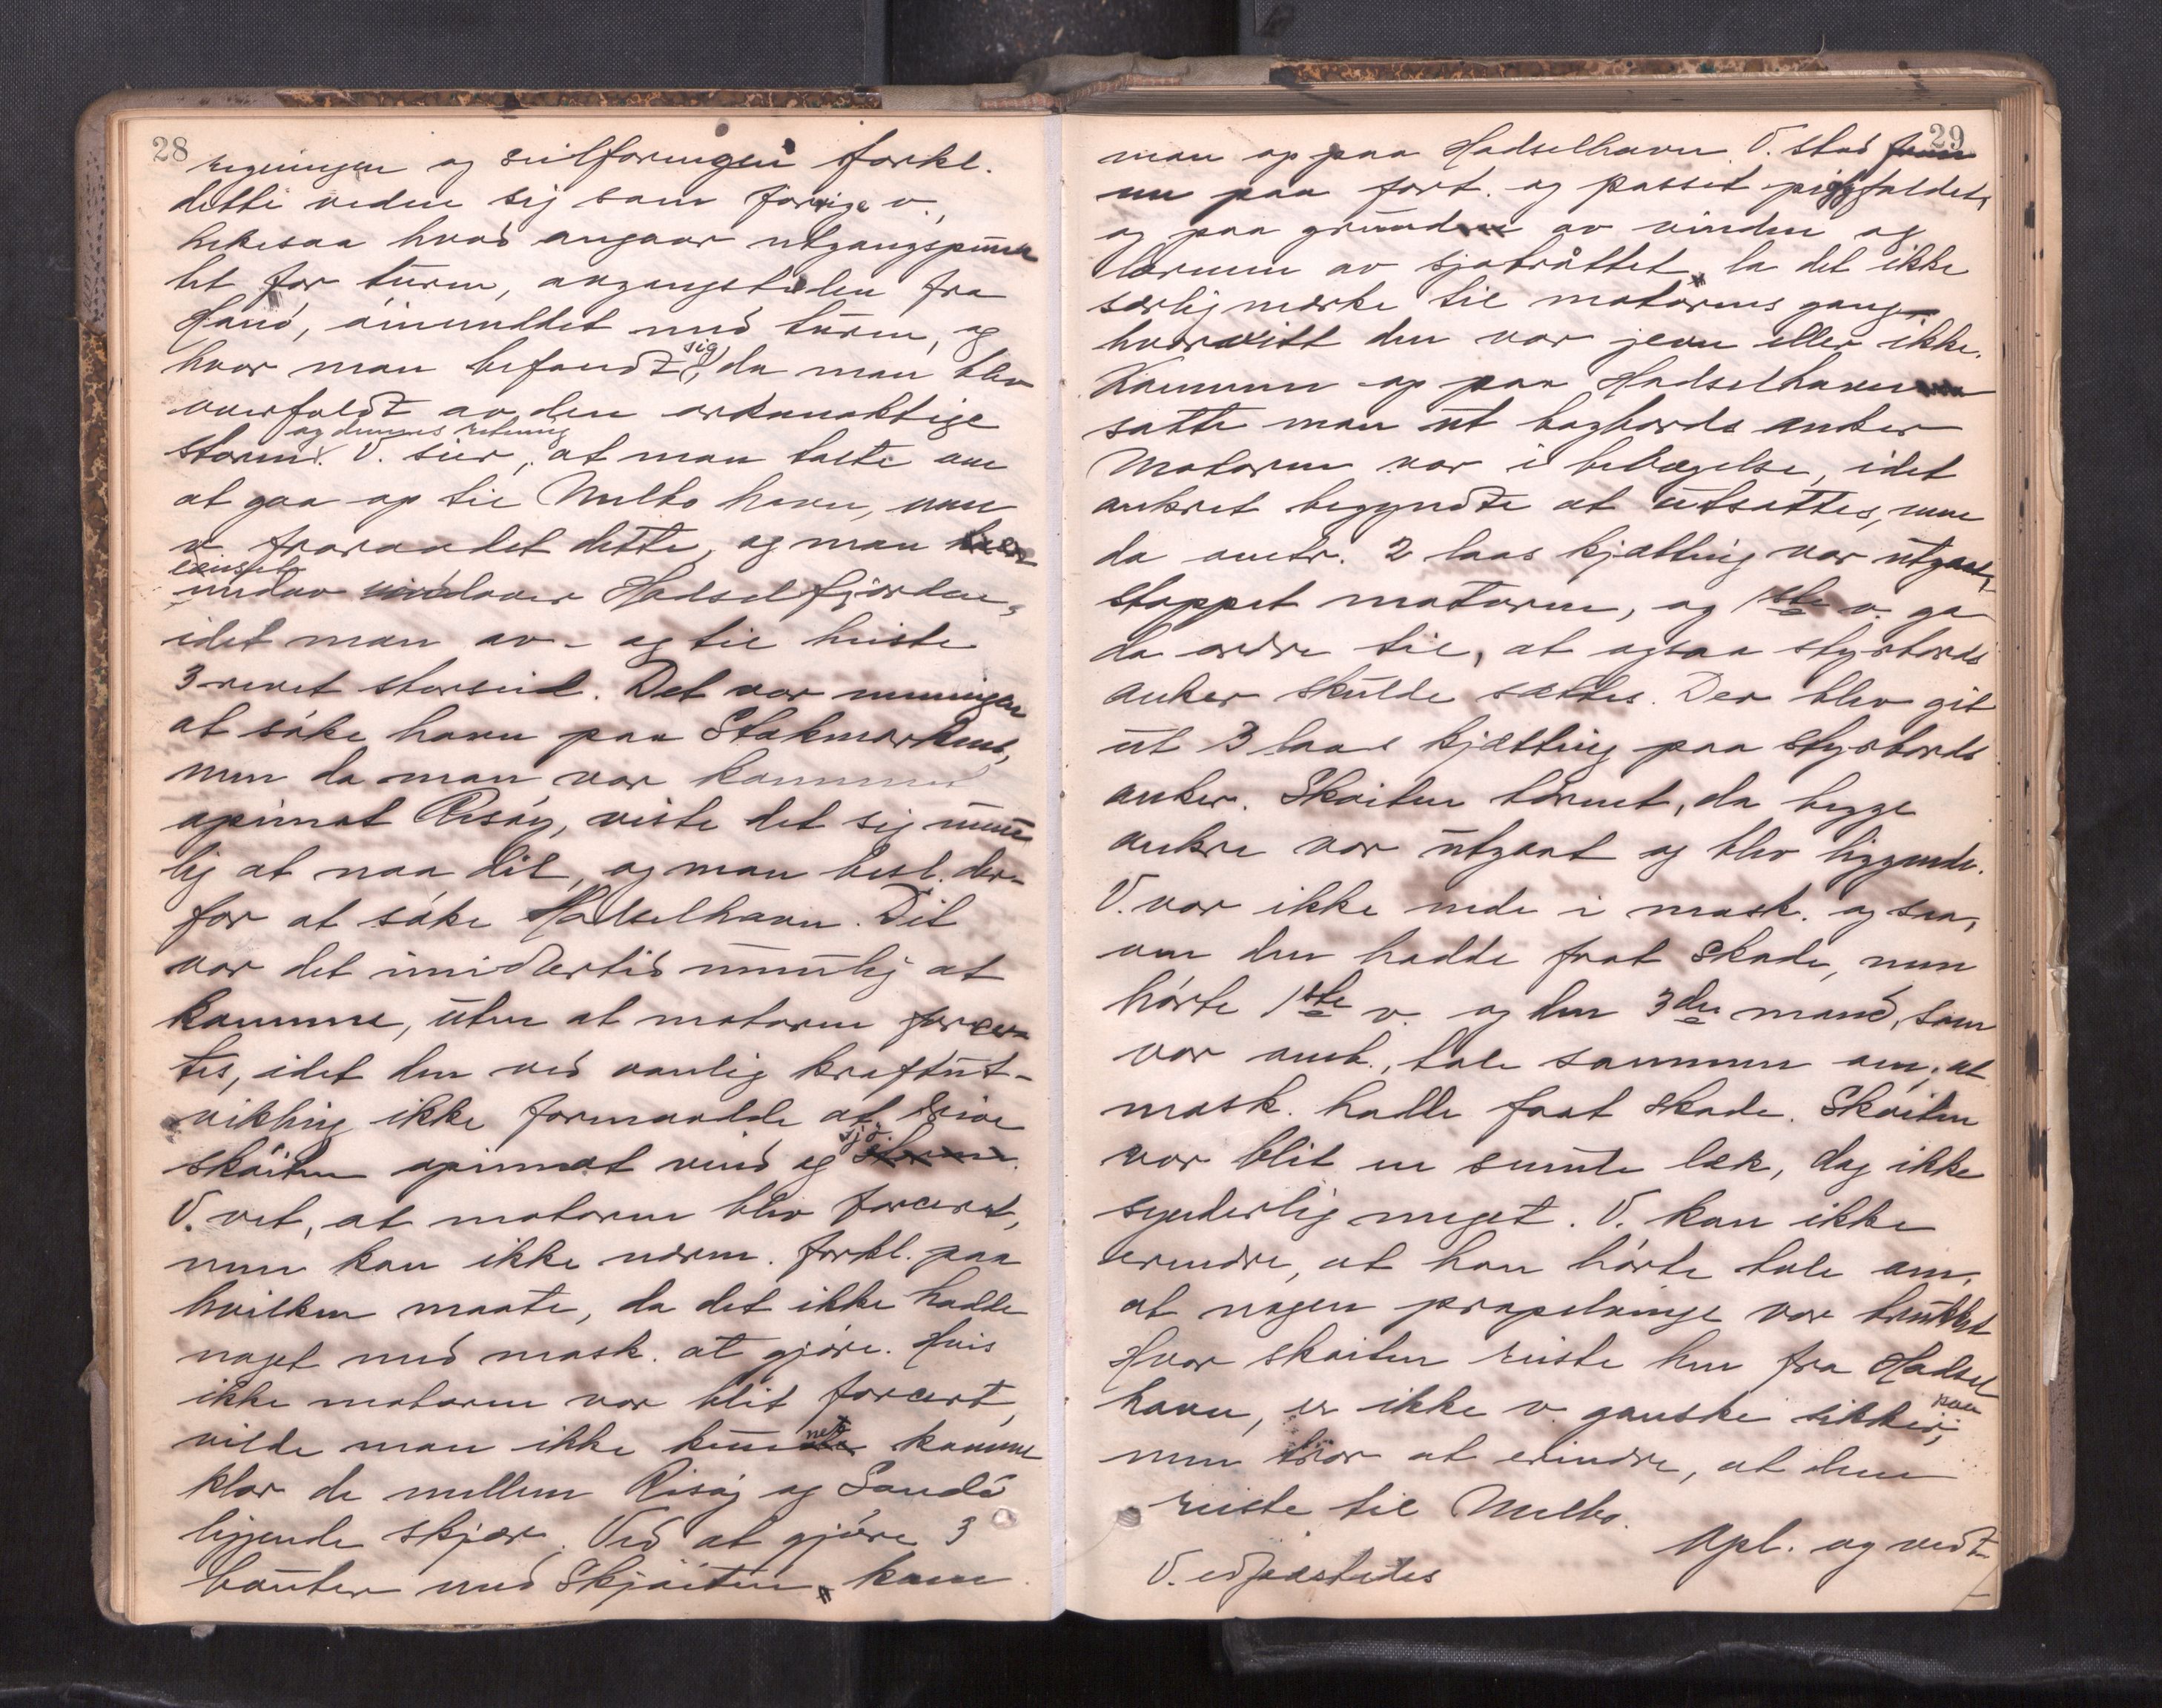 28
regningen og seilføringen forkl.
dette vidne sig som forrige v.,
likesaa hvad angaar utgangspunk
tet for turen, avgangstiden fra
Hanø, øiemedet med turen, og
hvor man befandt sig, da man blev
overfaldt av den orkanaktige
storm og dennes retning. V. sier, at man talte om
at gaa op til Melbo havn, men
v. fraraadet dette, og man
lenset nedover Hadselfjorden,
idet man av- og til heiste
3 revet storseil. Det var meningen
at søke havn paa Stokmarknes,
men da man var kommet
opimot Risøy, viste det sig umu
lig at naa dit, og man besl. der-
for at søke Hadselhavn. Dit
var det imidlertid umulig at
komme, uten at motoren forcer-
tes, idet den ved vanlig kraftut-
vikling ikke formaadde at drive
skøiten opimot vind og sjø.
V. vet, at motoren blev forceret,
men kan ikke nærm. forkl. paa
hvilken maate, da det ikke hadde
noget med mask. at gjøre. Hvis
ikke motoren var blit forcert,
vilde man ikke kunnet komme
klar de mellem Risøy og Sandø
liggende skjær. Ved at gjøre 3
bauter med Skjøiten, kom
29
man op paa Hadselhavn. V. stod
nu paa fort. og passet pigfaldet,
og paa grund av vinden og
larmen av sjøbråttet, la det ikke
særlig merke til motorens gang,
hvorvitt den var jevn eller ikke.
Kommen op paa Hadselhavn
satte man ut bagbords anker
Motoren var i bevægelse, idet
ankret begyndte at utsættes, men
da omtr. 2 laas kjætting var utgaat,
stoppet motoren, og 1ste v. ga
da ordre til, at ogsaa styrbords
anker skulde sættes. Der blev git
ut 3 laas kjætting paa styrbords
anker. Skøiten tørnet, da begge
ankre var utgaat og blev liggende.
V. var ikke nede i mask. og saa,
om den hadde faat skade, men
hørte 1ste v. og den 3die mand, som
var omb., tale sammen om, at
mask. hadde faat skade. Skøiten
var blit en smule læk, dog ikke
synderlig meget. V. kan ikke
erindre, at han hørte tale om,
at nogen propelvinge var brukket
Hvor skøiten reiste hen fra Hadsel
havn, er ikke v. ganske sikker paa,
men tror at erindre, at den
reiste til Melbo.
Opl. og vedt.
V. edfæstedes